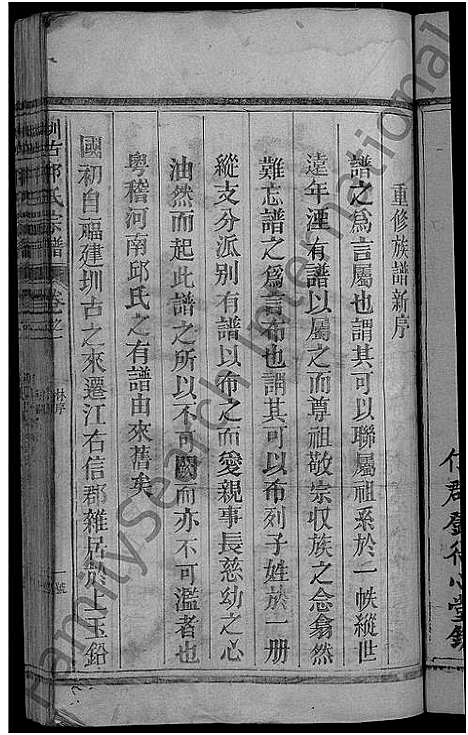 重修族譜新序
譜之爲言屬也謂其可以聯屬祖系於一帙縱世
遠年湮有譜以屬之而尊祖敬宗収族之念翕然
難忘譜之爲言布也謂其可以布列子姓於一册
縱支分派別有譜以布之而愛親事長慈幼之心
油然而起此譜之所以不可闕而亦不可濫者也
粤稽河南邱氏之有譜由來舊矣
國初自福建圳古之來遷江右信郡雜居於上玉鉛
圳古邱氏宗譜 卷之
林序
號
FamilySearch International